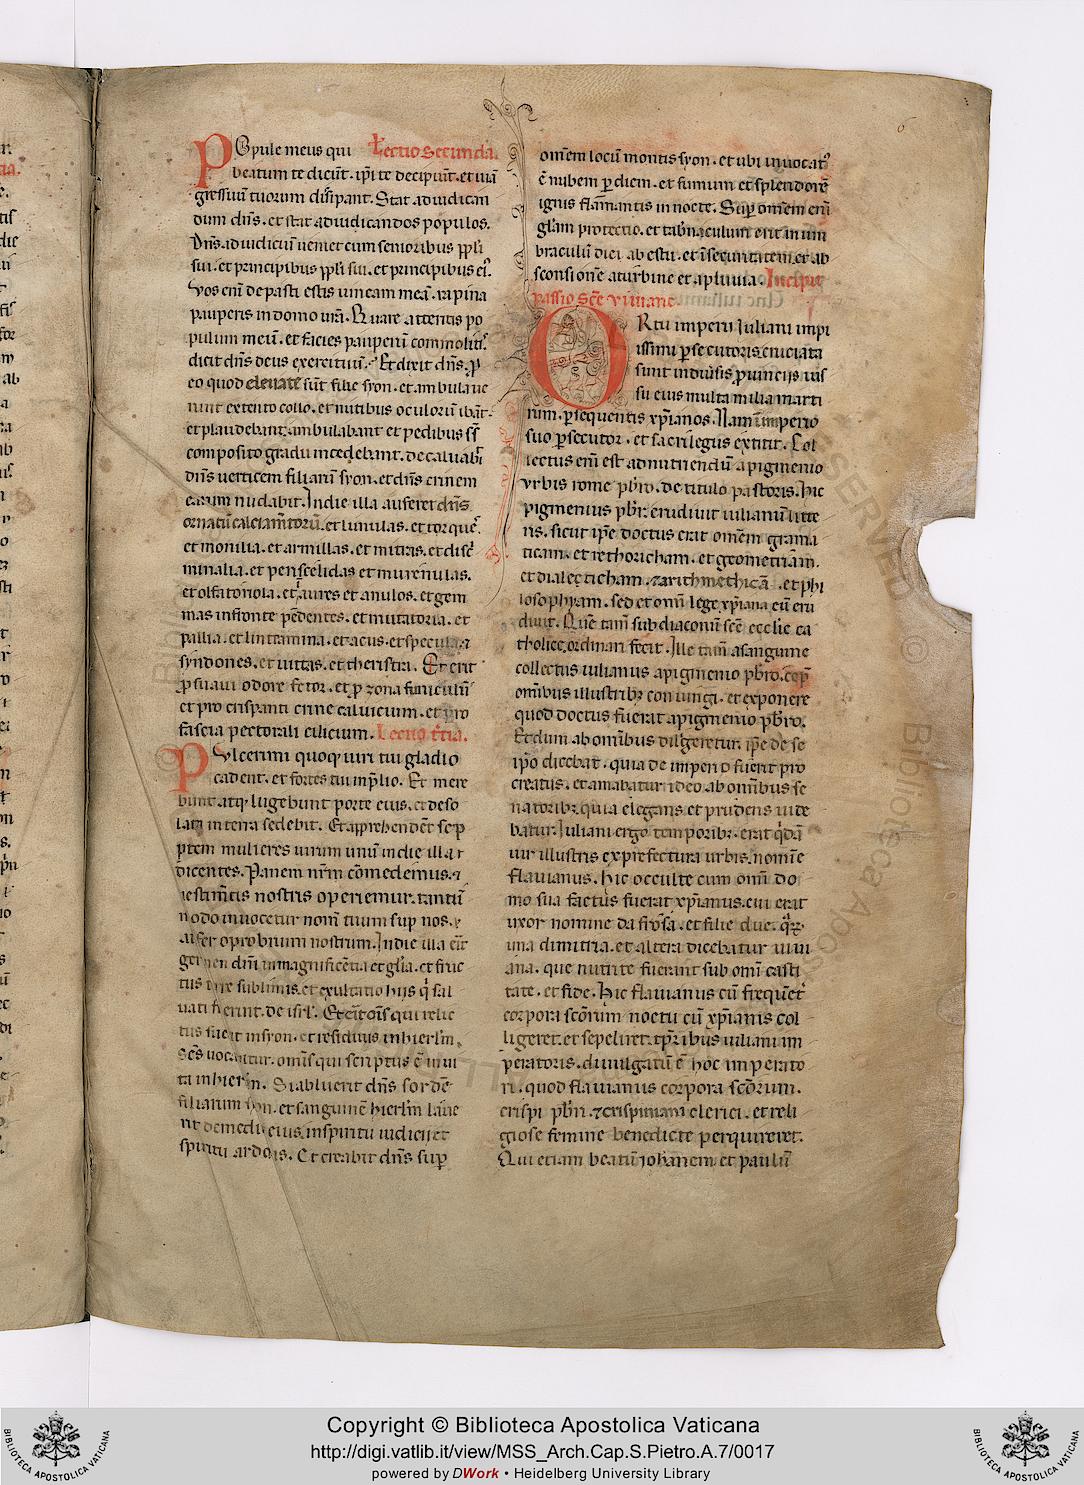 6
Popule meus qui Lectio secunda.
beatum te dicūt. ip̄i te decipiūt. et uiā
gressuū tuorum dissipant. Stat ad iudican
dum dn̄s. et stat ad iudicandos populos.
Dn̄s. ad iudiciū ueniet cum senioribus ppl̄i
sui. et principibus ppl̄i sui. et principibus eiꝰ.
Vos eni᷑ depasti estis uineam meā. rapina
pauperis in domo ur̄a. Quare atteritis po
pulum meū. et facies pauperū commolitis.
dicit dn̄s deus exercituū. Et dixit dn̄s. ꝓ
eo quod eleuate sūt filie syon. et ambulaue
runt extento collo. et nutibus oculorū ibāt.
et plaudebant. ambulabant et pedibus suis
composito gradu incedebant. decaluabit
dn̄s uerticem filiarū syon. et dn̄s crinem
earum nudabit. In die illa auferet dn̄s
ornatū calciamtorū. et lunulas. et torques.
et monilia. et armillas. et mitras. et discri
minalia. et periscelidas et murenulas.
et olfatoriola. et īaures et anulos. et gem
mas in fronte pēdentes. et mutatoria. et
pallia. et linteamina. et acus. et specula. ⁊
syndones. et uittas. et theristra. Et erit
ꝓ suaui odore fetor. et ꝓ zona funiculū
et pro crispanti crine caluicium. et pro
fascia pectorali cilicium. Lectio t̄tia.
Pulcerimi quoqꝫ uiri tui gladio
cadent. et fortes tui in p̄lio. Et mere
bunt. atqꝫ lugebunt porte eius. et deso
lata in terra sedebit. Et apprehendēt sep
tem mulieres uirum unū in die illa
dicentes. Panem nr̄m cōmedemus. ⁊
uestimētis nostris operiemur. tantū
modo inuocetur nomē tuum suꝑ nos.
aufer oprobrium nostrum. In die illa erit
germen dn̄i in magnificētia et gl̄ia. et fruc
tus terre sublimis. et exultatio hijs q̄ sal
uati fuerint. de isrl̄. Et erit ois̄ qui relic
tus fuerit in syon. et residuus in hierl̄m.
sc̄s uocabitur. omīs qui scriptus ē in uita
in hierl̄m. Si abluerit dn̄s sordē
filiarum syon. et sanguinē hierl̄m laue
rit de medio eius. in spiritu iudicij et
spiritu ardoris. Et creabit dn̄s suꝑ
omēm locū montis syon. et ubi inuocatꝰ
ē nubem ꝑ diem. et fumum et splendorē
ignis flāmantis in nocte. Suꝑ omēm eni᷑
gl̄am protectio. et tab̄naculum erit in um
braculū diei ab estu. et ī securitatem. et ab
sconsionē a turbine et a pluuia. Incipit
passio sc̄e viuiane
ORtu imperii Iuliani impi
issimi ꝑsecutoris cruciata
sunt in diuīsis ꝓuincijs ius
su eius multa milia marti
rum. ꝑsequentis xp̄ianos. Nam ī imperio
suo ꝑsecutor. et sacrilegus extitit. Col
lectus eni᷑ est ad nutriendū a pigmenio
vrbis rome pb̄ro. de titulo pastoris. hic
pigmenius pb̄r erudiuit iulianū litte
ris. sicut ip̄e doctus erat omēm grama
ticam. et rethoricham. et geometriam.
et dialecticham. ⁊ arithmethicā. et phi
losophyam. sed et omī lege xp̄iana eū eru
diuit. Quē tam̄ subdiaconū sc̄e ecclīe ca
tholice ordinari fecit. Ille tam̄ a sanguine
collectus iulianus a pigmenio pb̄ro. cepit
omībus illustribꝫ coniungi. et exponere
quod doctus fuerat a pigmenio pb̄ro.
Et dum ab omībus diligeretur. ip̄e de se
ip̄o dicebat. quia de imperio fuerit pro
creatus. et amabatur ideo ab omībus se
natoribꝫ. quia elegans et prudens uide
batur. Iuliani ergo temporibꝫ. erat q̄dā
uir illustris ex prefectura urbis. nomīe
flauianus. hic occulte cum omī do
mo sua factus fuerat xp̄ianus. cui erat
uxor nomine dafrosa. et filie due. qꝝ
una dimitria. et altera dicebatur uiui
ana. que nutrite fuerant sub omī casti
tate. et fide. hic flauianus cū frequēter
corpora scōrum noctu cū xp̄ianis col
ligeret. et sepeliret. tp̄ribus iuliani im
peratoris. diuulgatū ē hoc imperato
ri. quod flauianus corpora scōrum.
crispi pb̄ri. ⁊ crispiniani clerici. et reli
giose femine benedicte perquireret.
Qui etiam beatū iohānem et paulū
Copyright © Biblioteca Apostolica Vaticana
http://digi.vatlib.it/view/MSS_Arch.Cap.S.Pietro.A.7/0017
powered by DWork • Heidelberg University Library
BIBLIOTECA APOSTOLICA VATICANA
BIBLIOTECA APOSTOLICA VATICANA